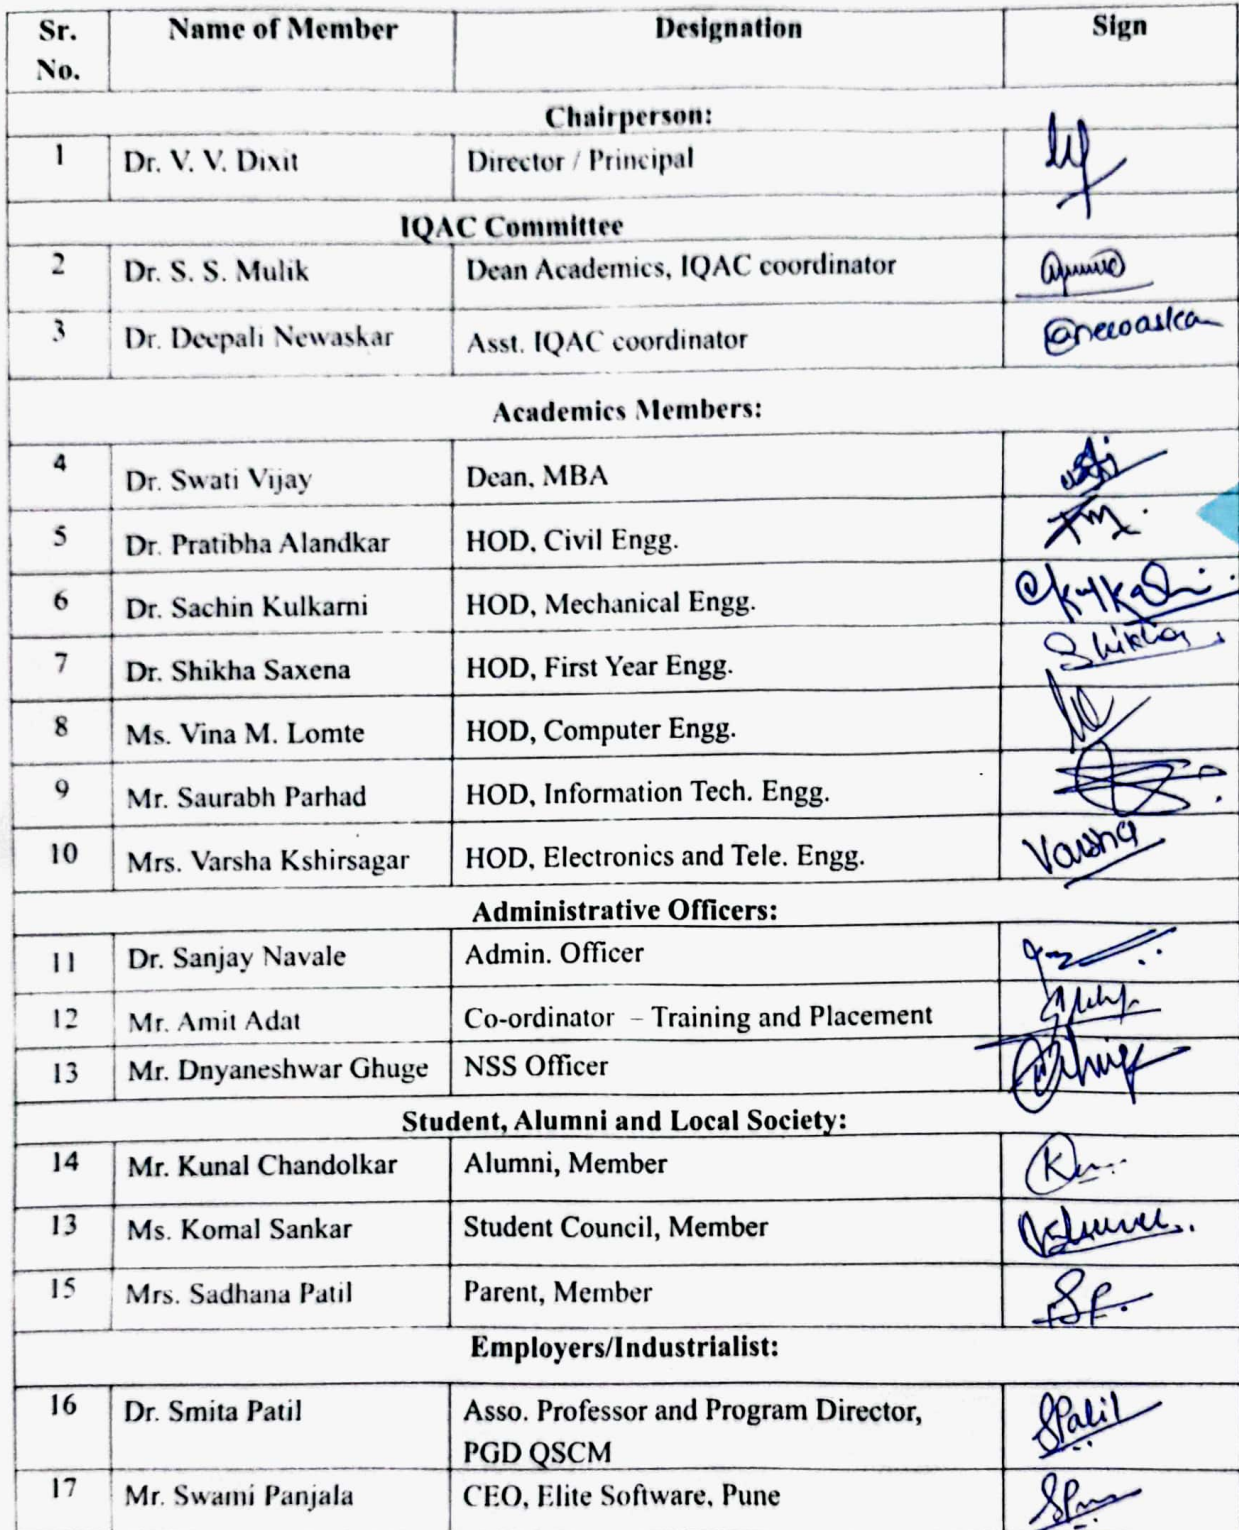 Sr. No. Name of Member Designation Sign
Chairperson:
1 Dr. V. V. Dixit Director / Principal
IQAC Committee
2 Dr. S. S. Mulik Dean Academics, IQAC coordinator
3 Dr. Deepali Newaskar Asst. IQAC coordinator
Academics Members:
4 Dr. Swati Vijay Dean, MBA
5 Dr. Pratibha Alandkar HOD, Civil Engg.
6 Dr. Sachin Kulkarni HOD, Mechanical Engg.
7 Dr. Shikha Saxena HOD, First Year Engg. Shikha
8 Ms. Vina M. Lomte HOD, Computer Engg.
9 Mr. Saurabh Parhad HOD, Information Tech. Engg.
10 Mrs. Varsha Kshirsagar HOD, Electronics and Tele. Engg. Varsha
Administrative Officers:
11 Dr. Sanjay Navale Admin. Officer
12 Mr. Amit Adat Co-ordinator – Training and Placement
13 Mr. Dnyaneshwar Ghuge NSS Officer
Student, Alumni and Local Society:
14 Mr. Kunal Chandolkar Alumni, Member
13 Ms. Komal Sankar Student Council, Member
15 Mrs. Sadhana Patil Parent, Member
Employers/Industrialist:
16 Dr. Smita Patil Asso. Professor and Program Director, SPatil
PGD QSCM
17 Mr. Swami Panjala CEO, Elite Software, Pune